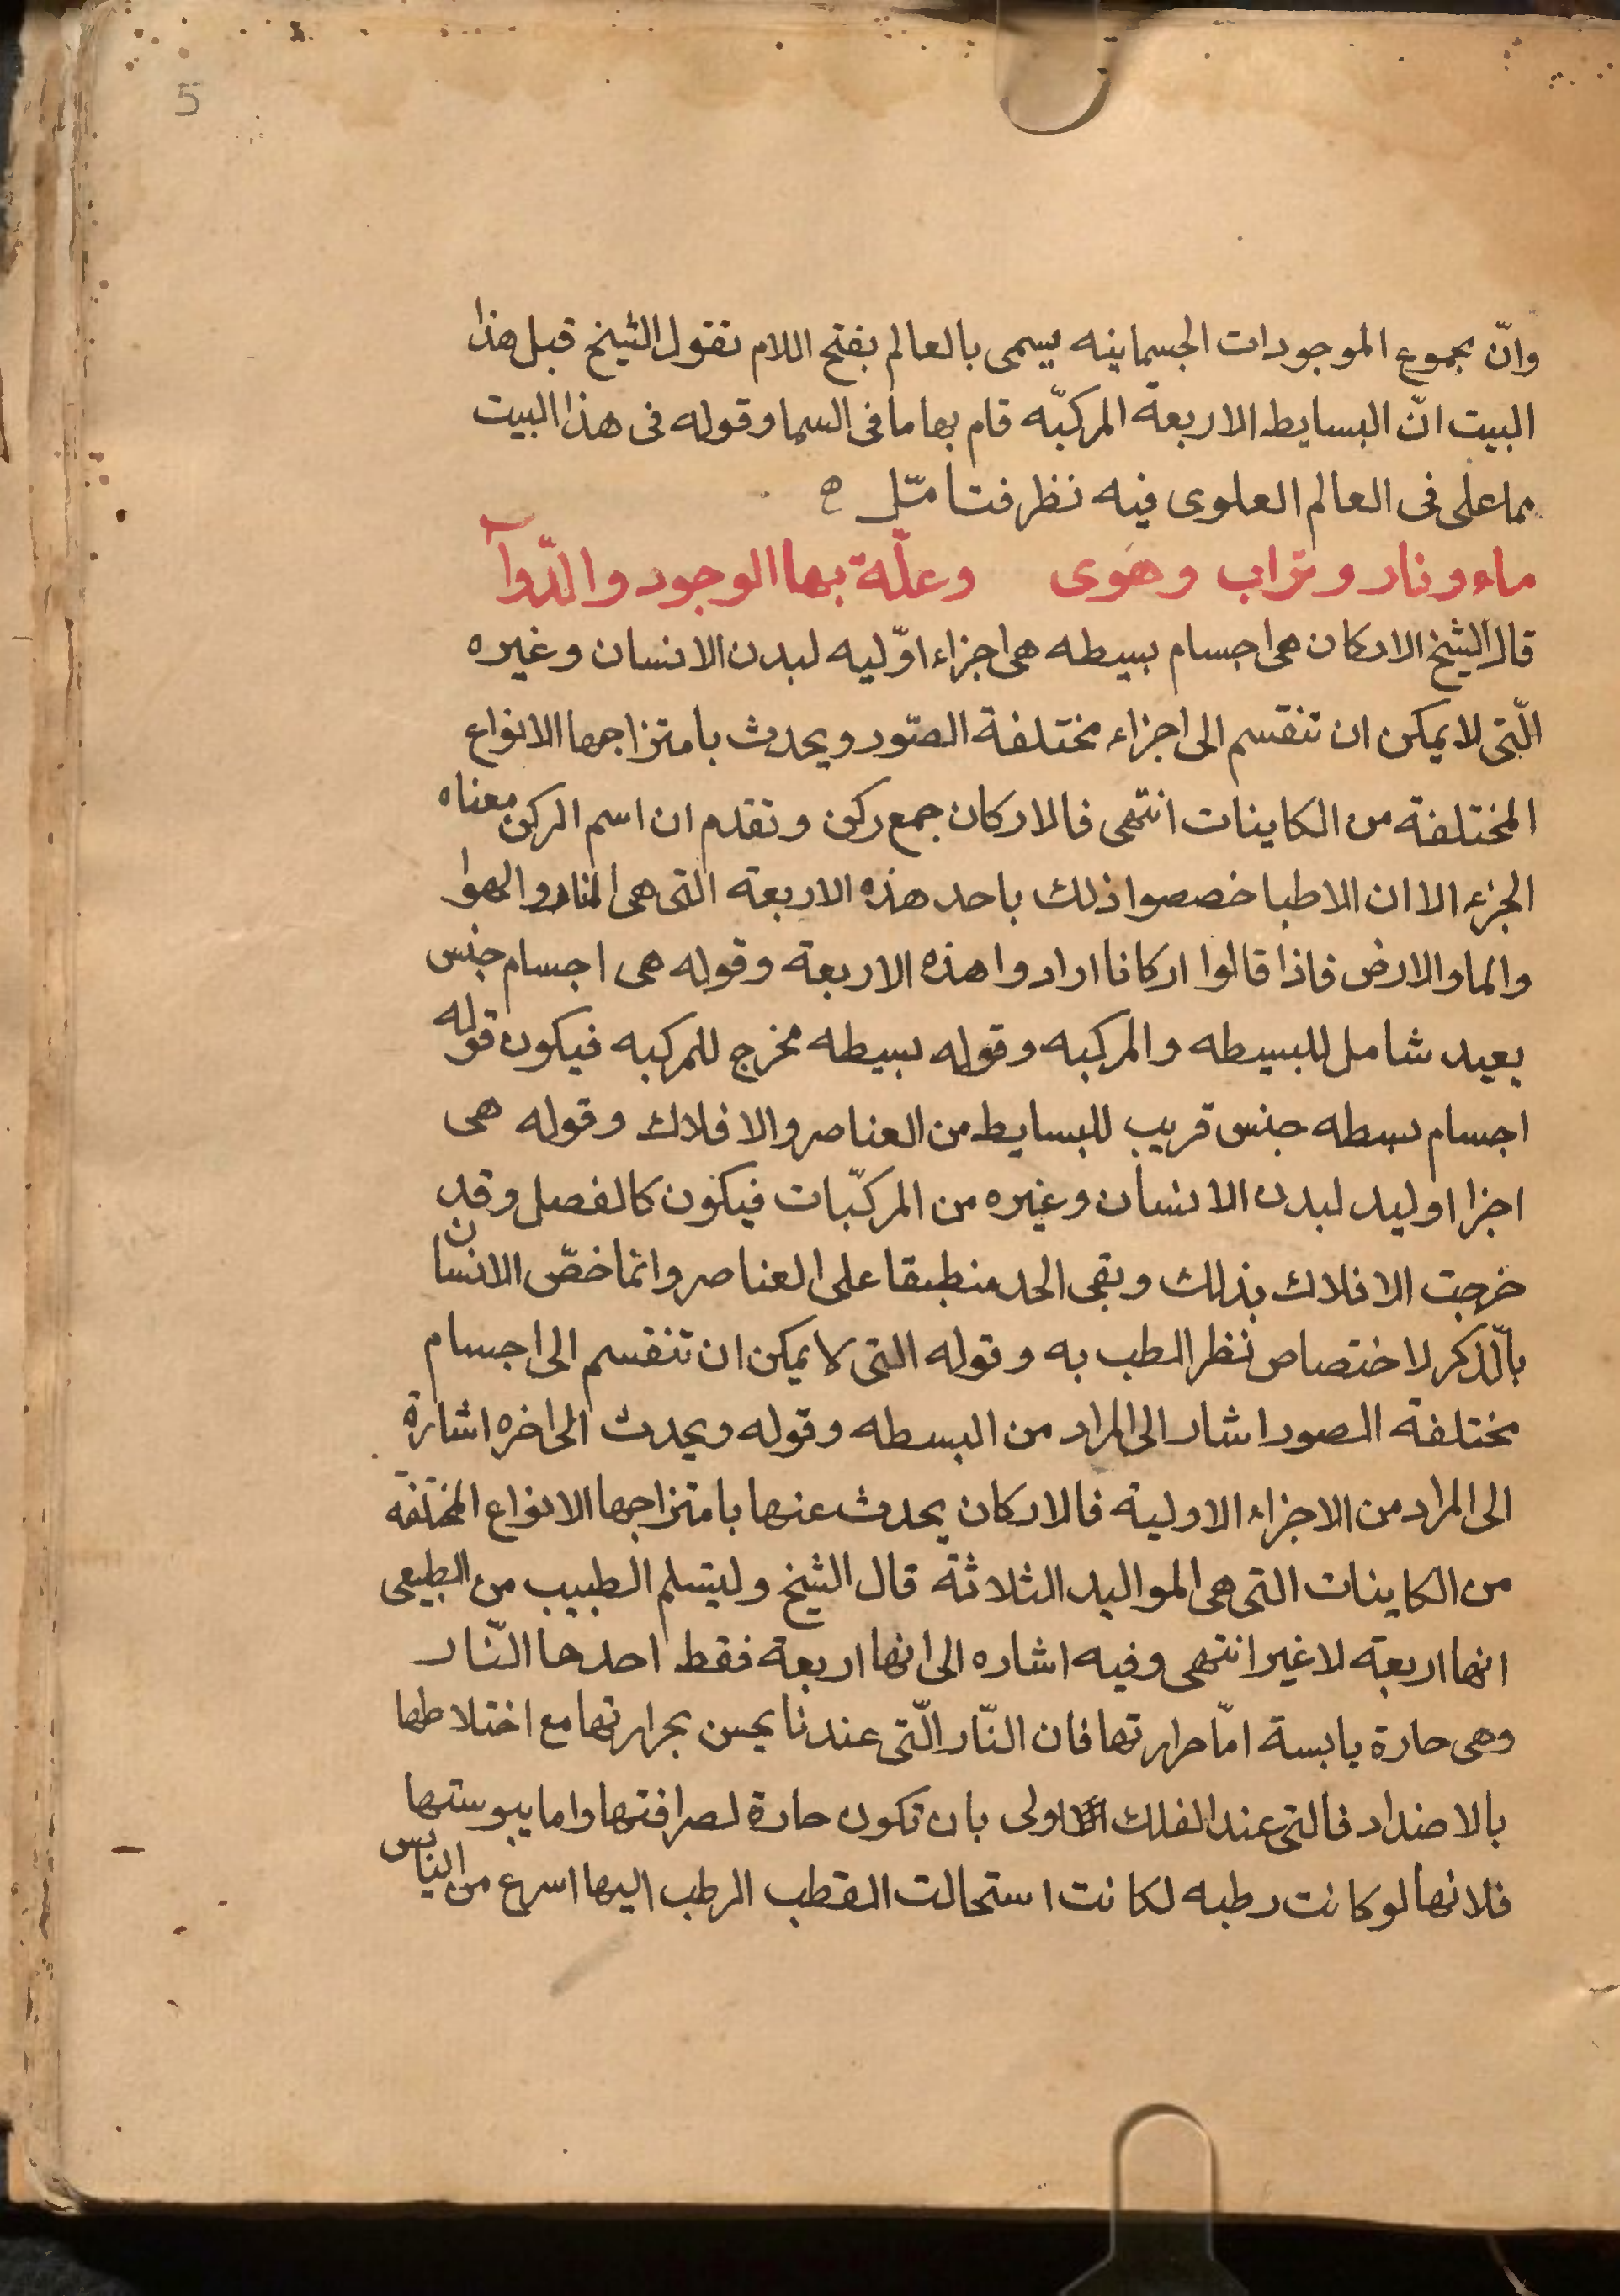 5
وانّ مجموع الموجودات الجسمانيه يسمى بالعالم بفتح اللام نقول الشيخ قبل هذا
البيت انّ البسايط الاربعة المركبّه قام بها ما فى السما وقوله فى هذا البيت
مما على فى العالم العلوى فيه نظر فتأمّل ه
ماء ونار وتراب وهوى وعلّة بها الوجود والدّوآ
قال الشيخ الاركان هى اجسام بسيطه هى اجزاء اوّليه لبدن الانسان وغيره
الّتى لا يمكن ان تنقسم الى اجزاء مختلفة الصّور ويحدث بامتزاجها الانواع
المختلفة من الكاينات انتهى فالاركان جمع ركن وتقدم ان اسم الركن معناه
الجزء الا ان الاطبا خصصوا ذلك باحد هذه الاربعة التى هى النار والهوا
والما والارض فاذا قالوا اركانا ارادوا هذه الاربعة وقوله هى اجسام جنس
بعيد شامل للبسيطه والمركبه وقوله بسيطه مخرج للمركبه فيكون قوله
اجسام بسطه جنس قريب للبسايط من العناصر والافلاك وقوله هى
اجزا اوليه لبدن الانسان وغيره من المركبّات فيكون كالفصل وقد
خرجت الافلاك بذلك وبقى الحد منطبقا على العناصر وانّما خصّ الانسان
بالذّكر لاختصاص نظر الطب به وقوله التى لا يمكن ان تنقسم الى اجسام
مختلفة الصور اشار الى المراد من البسطه وقوله ويحدث الى اخره اشارة
الى المراد من الاجزاء الاولية فالاركان يحدث عنها بامتزاجها الانواع المختلفه
من الكاينات التى هى المواليد الثلاثة قال الشيخ وليتسلم الطبيب من الطبيعى
انها اربعة لا غير انتهى وفيه اشاره الى انها اربعة فقط احدها النّار
وهى حارة يابسة امّا حرارتها فان النّار الّتى عندنا يحس بحرارتها مع اختلاطها
بالاضداد فالتى عند الفلك اولى بان تكون حارة لصرافتها واما يبوستها
فلانها لو كانت رطبه لكانت استحالت القطب الرطب اليها اسرع من اليابس